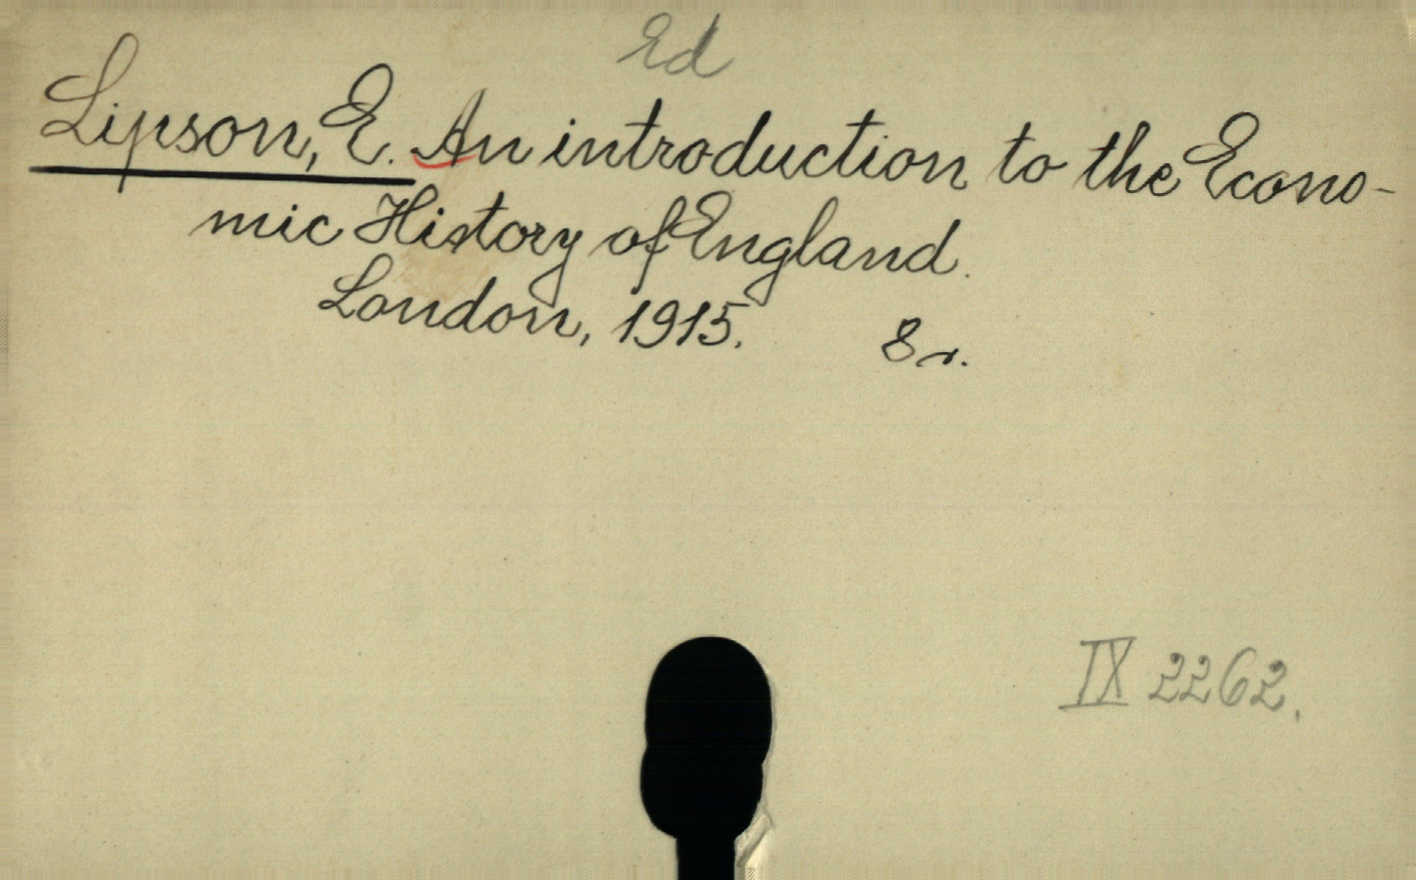 Ed
Lipson, E. An introduction to the Econo-
mic History of England.
London, 1915. 8r.
IX 2262.